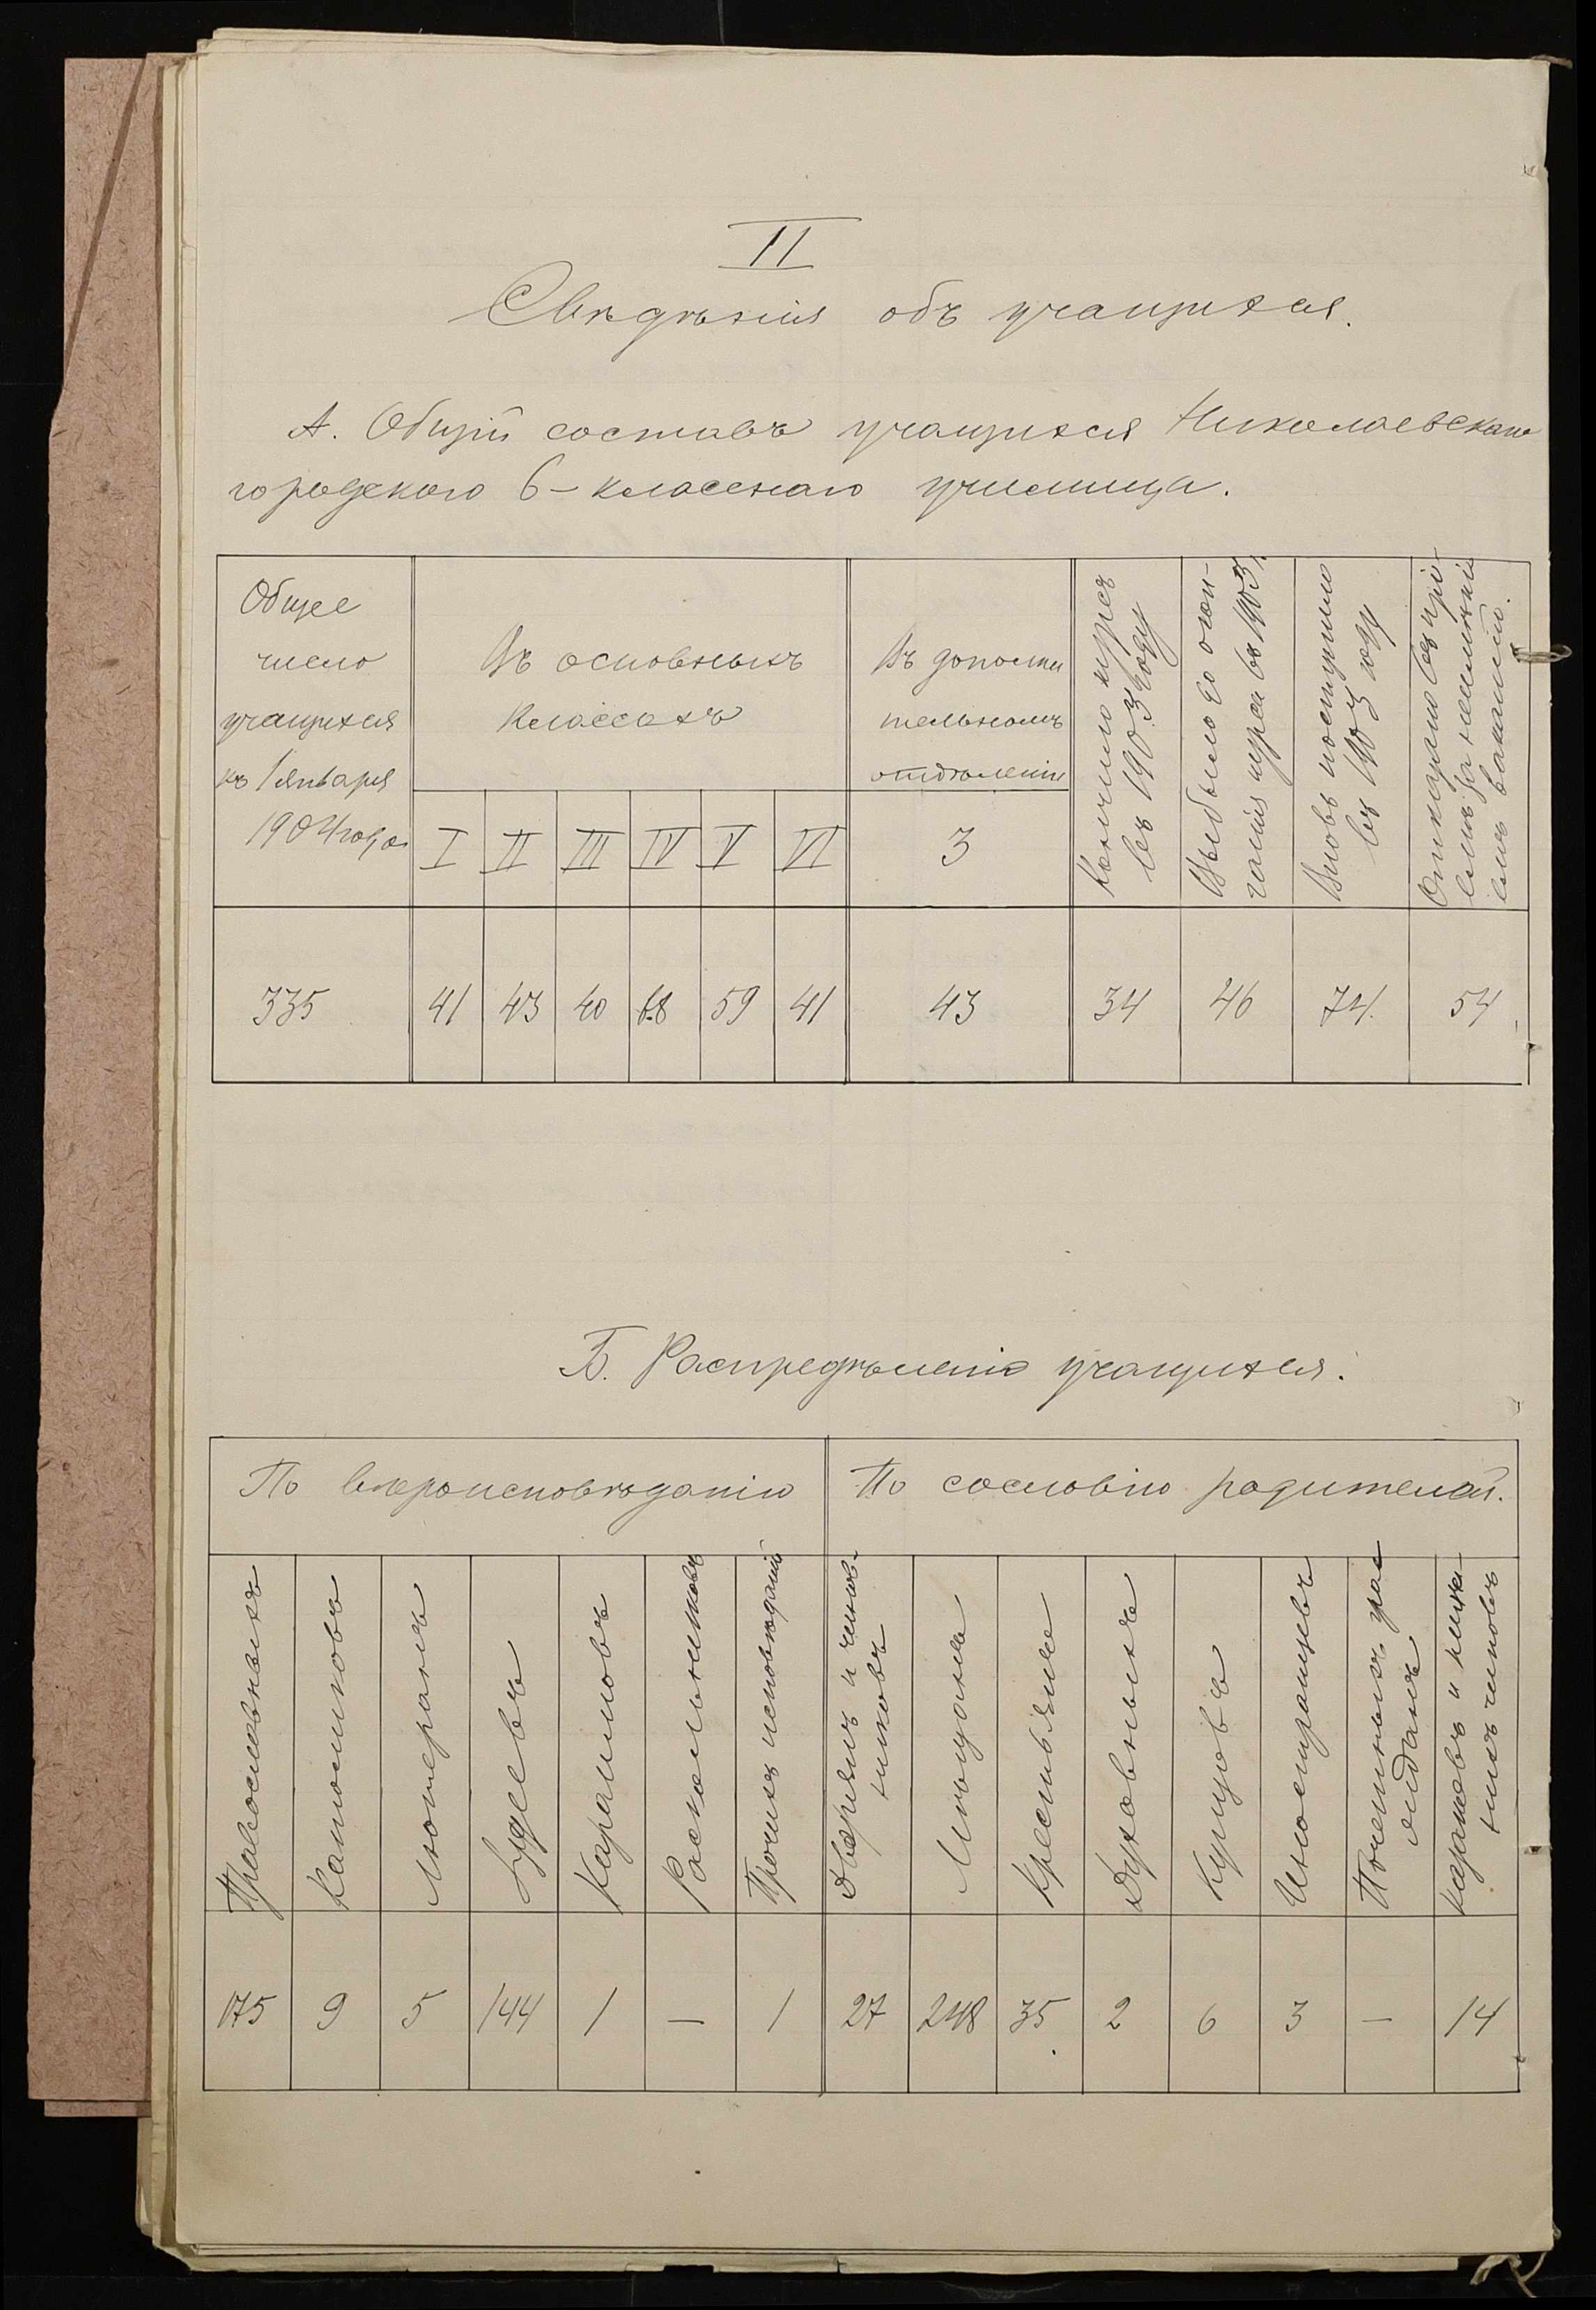 II
Свѣдѣнія объ учащихся.
А. Общій составъ учащихся Николаевскаго
городского 6-класснаго училища.
Общее
число
учащихся
къ 1 января
1904 года
Въ основныхъ
классахъ
I II III IV V VI
Въ дополни
тельномъ
отдѣленіи
3
Кончило курсъ
въ 1903 году
Выбыло до окон-
чанія курса въ 1903 г.
Вновь поступило
въ 1903 году
Отказано въ прі-
емѣ за неимѣні-
емъ вакансій.
335 41 43 40 68 59 41 43 34 46 74. 54
Б. Распредѣленіе учащихся.
По вѣроисповѣданію
По сословію родителей.
Православныхъ
Католиковъ
Лютеранъ
Іудеевъ
Караимовъ
Раскольниковъ
Прочихъ исповѣданій
Дворянъ и чинов-
никовъ
Мѣщанъ
Крестьянъ
Духовныхъ
Купцовъ
Иностранцевъ
Почетныхъ гра-
жданъ
Казаковъ и ниж-
нихъ чиновъ
175 9 5 144 1 — 1 27 248 35 2 6 3 — 14